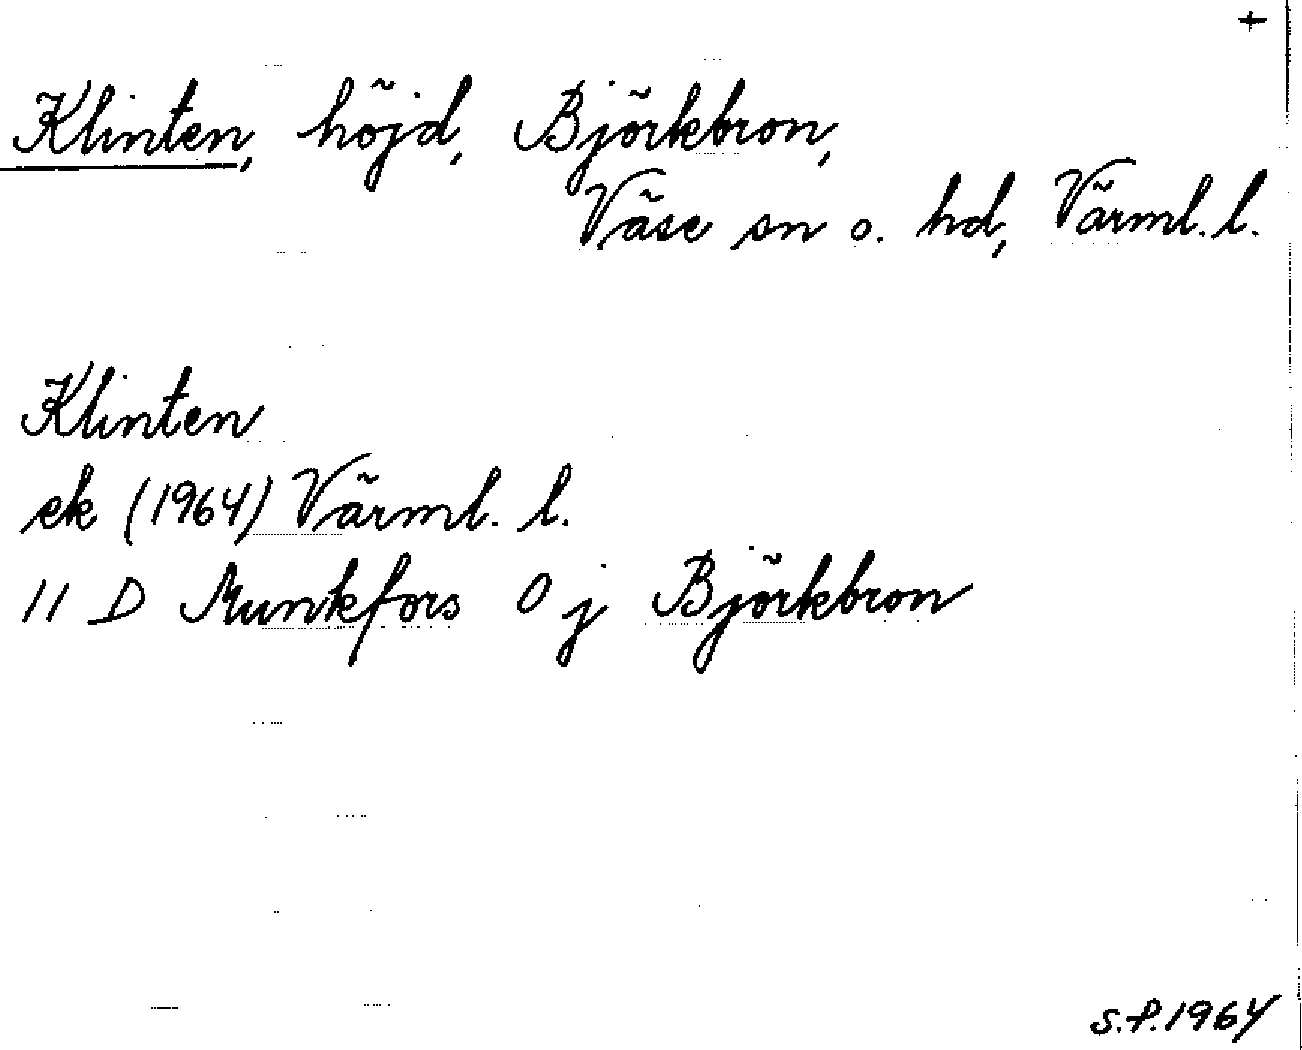 +
Klinten, höjd, Björkbron,
Väse sn o. hd, Värml. l.
Klinten
ek (1964) Värml. l.
11 D Munkfors 0 j Björkbron
S.P. 1964